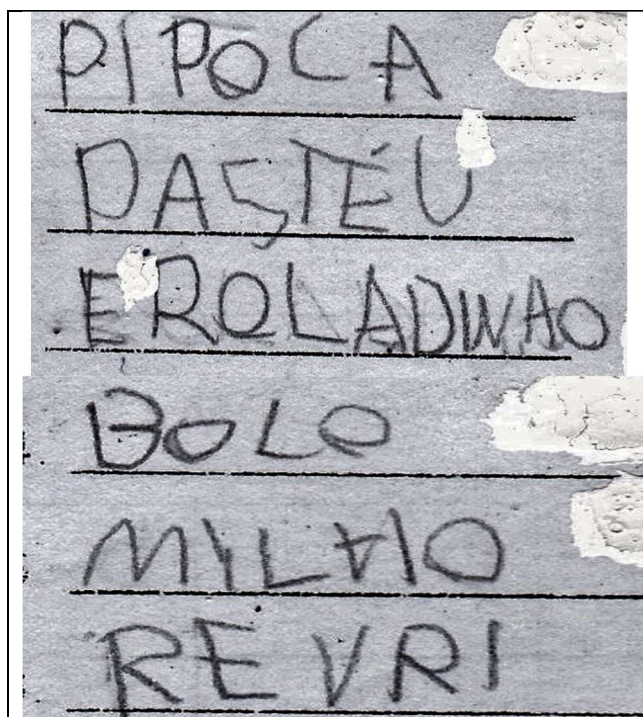 PIPOCA
PASTÉU
EROLADINAO
BOLO
MILHO
REVRI